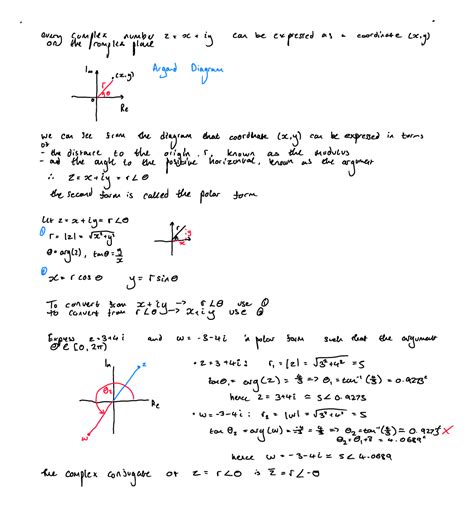 every complex number z = x + iy can be expressed as a coordinate (x,y)
on the complex plane
Im
(x,y)
Argand Diagram
r
θ
0
Re
we can see from the diagram that coordinate (x,y) can be expressed in terms
of
- the distance to the origin, r, known as the modulus
- and the angle to the positive horizontal, known as the argument
∴ z = x + iy = r∠θ
the second form is called the polar form
Let z = x + iy = r∠θ
① r = |z| = √x²+y²
θ = arg(z), tanθ = y/x
r
iy
x
② x = r cos θ y = r sin θ
To convert from x + iy → r∠θ use ①
to convert from r∠θ → x + iy use ②
Express z = 3+4i and w = -3-4i in polar form such that the argument
θ ∈ [0, 2π)
Im
z
θ₂
Re
w
• z = 3 + 4i : r₁ = |z| = √3²+4² = 5
tanθ₁ = arg(z) = 4/3 => θ₁ = tan⁻¹(4/3) = 0.9273ᶜ
hence z = 3+4i = 5∠0.9273
• w = -3-4i : r₂ = |w| = √3²+4² = 5
tan θ₂ = arg(w) = -4/-3 = 4/3 => θ₂ = tan⁻¹(4/3) = 0.9273ᶜ ×
θ₂ = θ₁+π = 4.0689ᶜ
hence w = -3-4i = 5∠4.0689
the complex conjugate of z = r∠θ is z̄ = r∠-θ